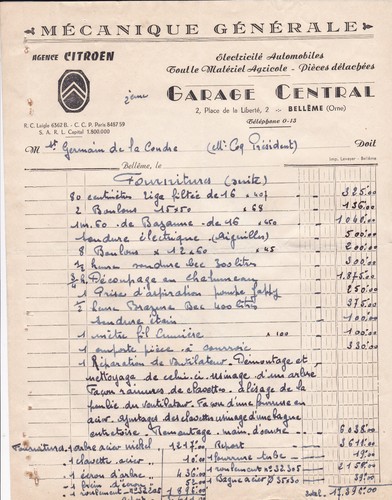 MÉCANIQUE GÉNÉRALE
AGENCE CITROEN
Electricité Automobiles
Tout le Matériel Agricole - Pièces détachées
GARAGE CENTRAL
2, Place de la Liberté, 2 - BELLÊME (Orne)
Téléphone 0-13
R. C. Laigle 6362 B. - C. C. P. Paris 8487 59
S. A. R. L. Capital 1.800.000
M St Germain de la Coudre (Mr Coq Président) Doit
Bellême, le
Imp. Levayer - Bellême
Fourniture (suite)
80 centimètres tige filtée de 16 x 407 325.00
2 Boulons 15 x 50 x 68 136.00
1m.60 de Bazanne de 16 x 450 1040.00
Soudure électrique (Aiguilles) 500.00
8 Boulons x 12 x 60 x 45
heures soudure bec 300 litres
Découpage en chalumeau 1.875.00
1 Prise d'aspiration pompe 250.00
heure Brazure Bec 400 litres 375.00
Soudure étain 100.00
1 mètre fil lumière x 100 100.00
1 emporte pièce à courroie 330.00
1 Réparation de Ventilateur. Démontage et
nettoyage de celui-ci. Usinage d'un arbre
Façon rainures de clavettes. alisage de la
poulie du ventilateur. Façon d'une
acier. ajustage des clavettes usinage d'une bague
entretoire Remontage main d'œuvre 6035.00
Fourniture 1 arbre acier nickel 1217.00 Report 3611.00
1 clavette acier 10.00 1 fourrure tube 19.00
1 écrou d'arbre 436.00 1 roulement n° 32305 2158.00
acier 52.00 1 Bague acier Ø 35 x 30 39.00
1 roulement n° 32205 1896.00 17.390.00